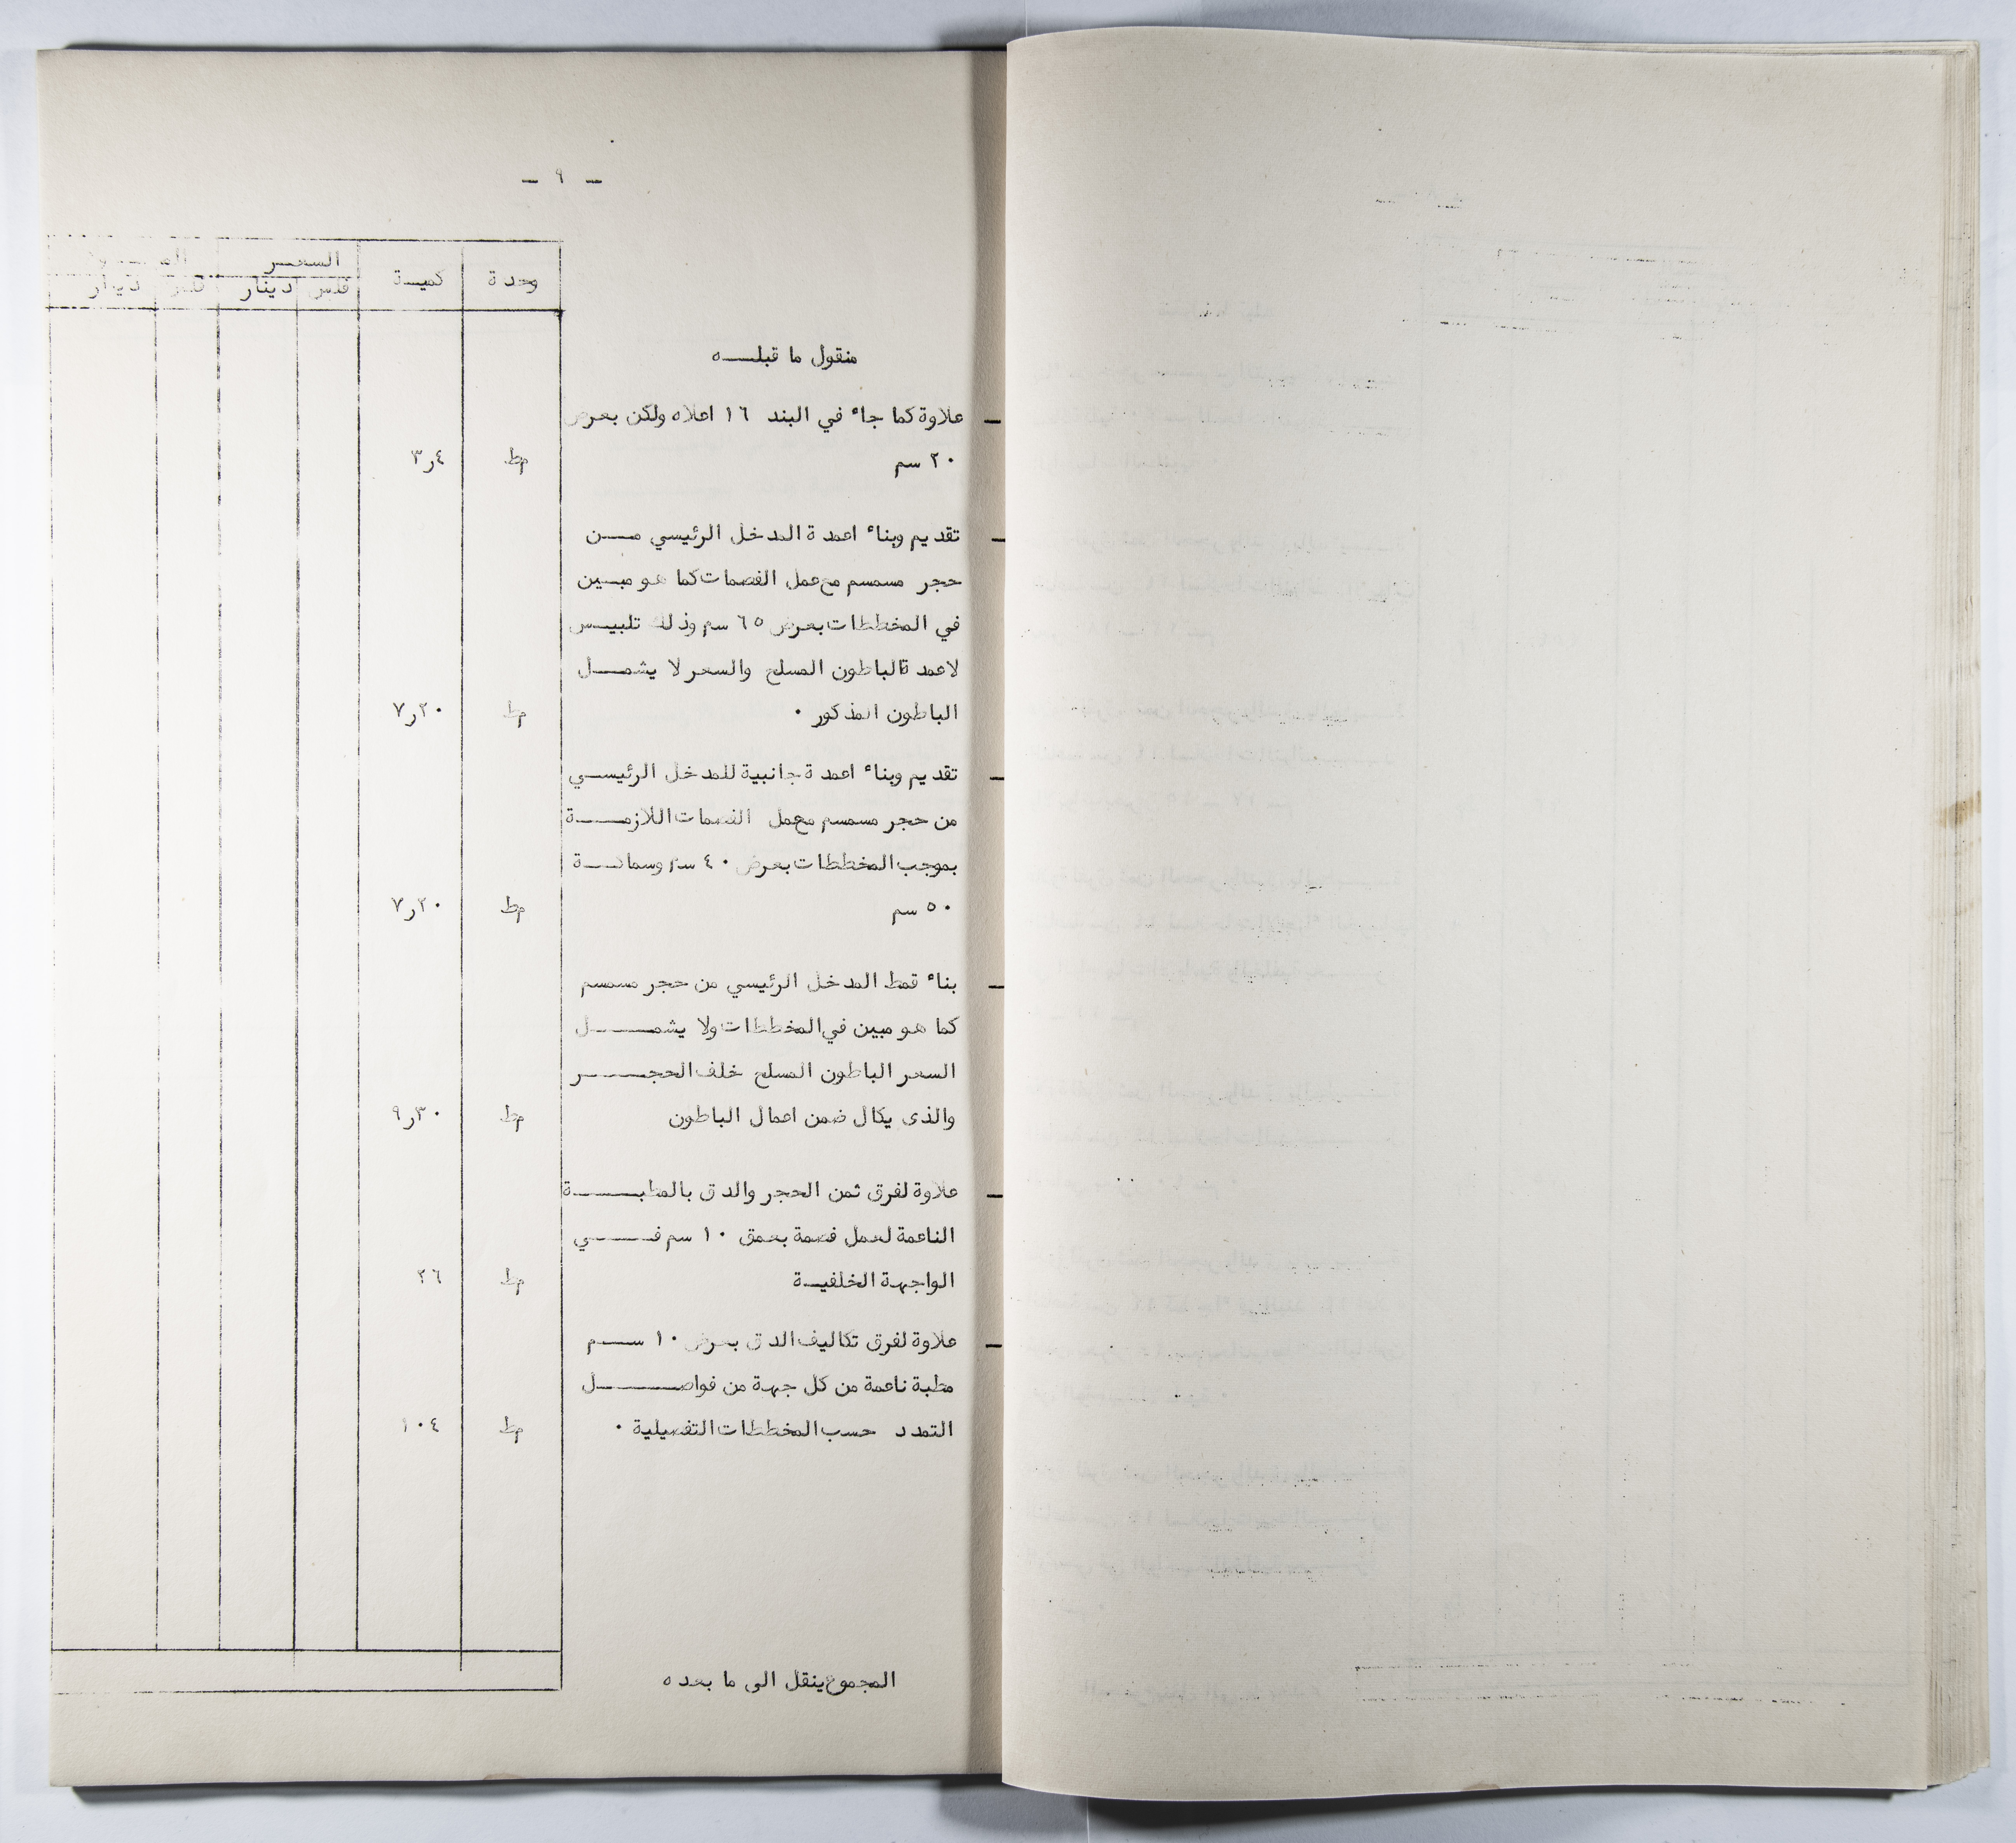 - ٩ -
وحدة كمية السعر
فلس دينار فلس دينار
منقول ما قبله
- علاوة كما جاء في البند ١٦ اعلاه ولكن بعرض
٢٠ سم مط ٣٫٤
- تقديم وبناء اعمدة المدخل الرئيسي من
حجر مسمسم مع عمل الفصمات كما هو مبين
في المخططات بعرض ٦٥ سم وذلك تلبيس
لاعمدة الباطون المسلح والسعر لا يشمل
الباطون المذكور . مط ٧٫٢٠
- تقديم وبناء اعمدة جانبية للمدخل الرئيسي
من حجر مسمسم مع عمل الفصمات اللازمة
بموجب المخططات بعرض ٤٠ سم وسماكة
٥٠ سم مط ٧٫٢٠
- بناء قمط المدخل الرئيسي من حجر مسمسم
كما هو مبين في المخططات ولا يشمل
السعر الباطون المسلح خلف الحجر
والذى يكال ضمن اعمال الباطون مط ٩٫٣٠
- علاوة لفرق ثمن الحجر والدق بالمطبة
الناعمة لعمل فصمة بعمق ١٠ سم في
الواجهة الخلفية مط ٢٦
- علاوة لفرق تكاليف الدق بعرض ١٠ سم
مطبة ناعمة من كل جهة من فواصل
التمدد حسب المخططات التفصيلية . مط ١٠٤
المجموع ينقل الى ما بعده